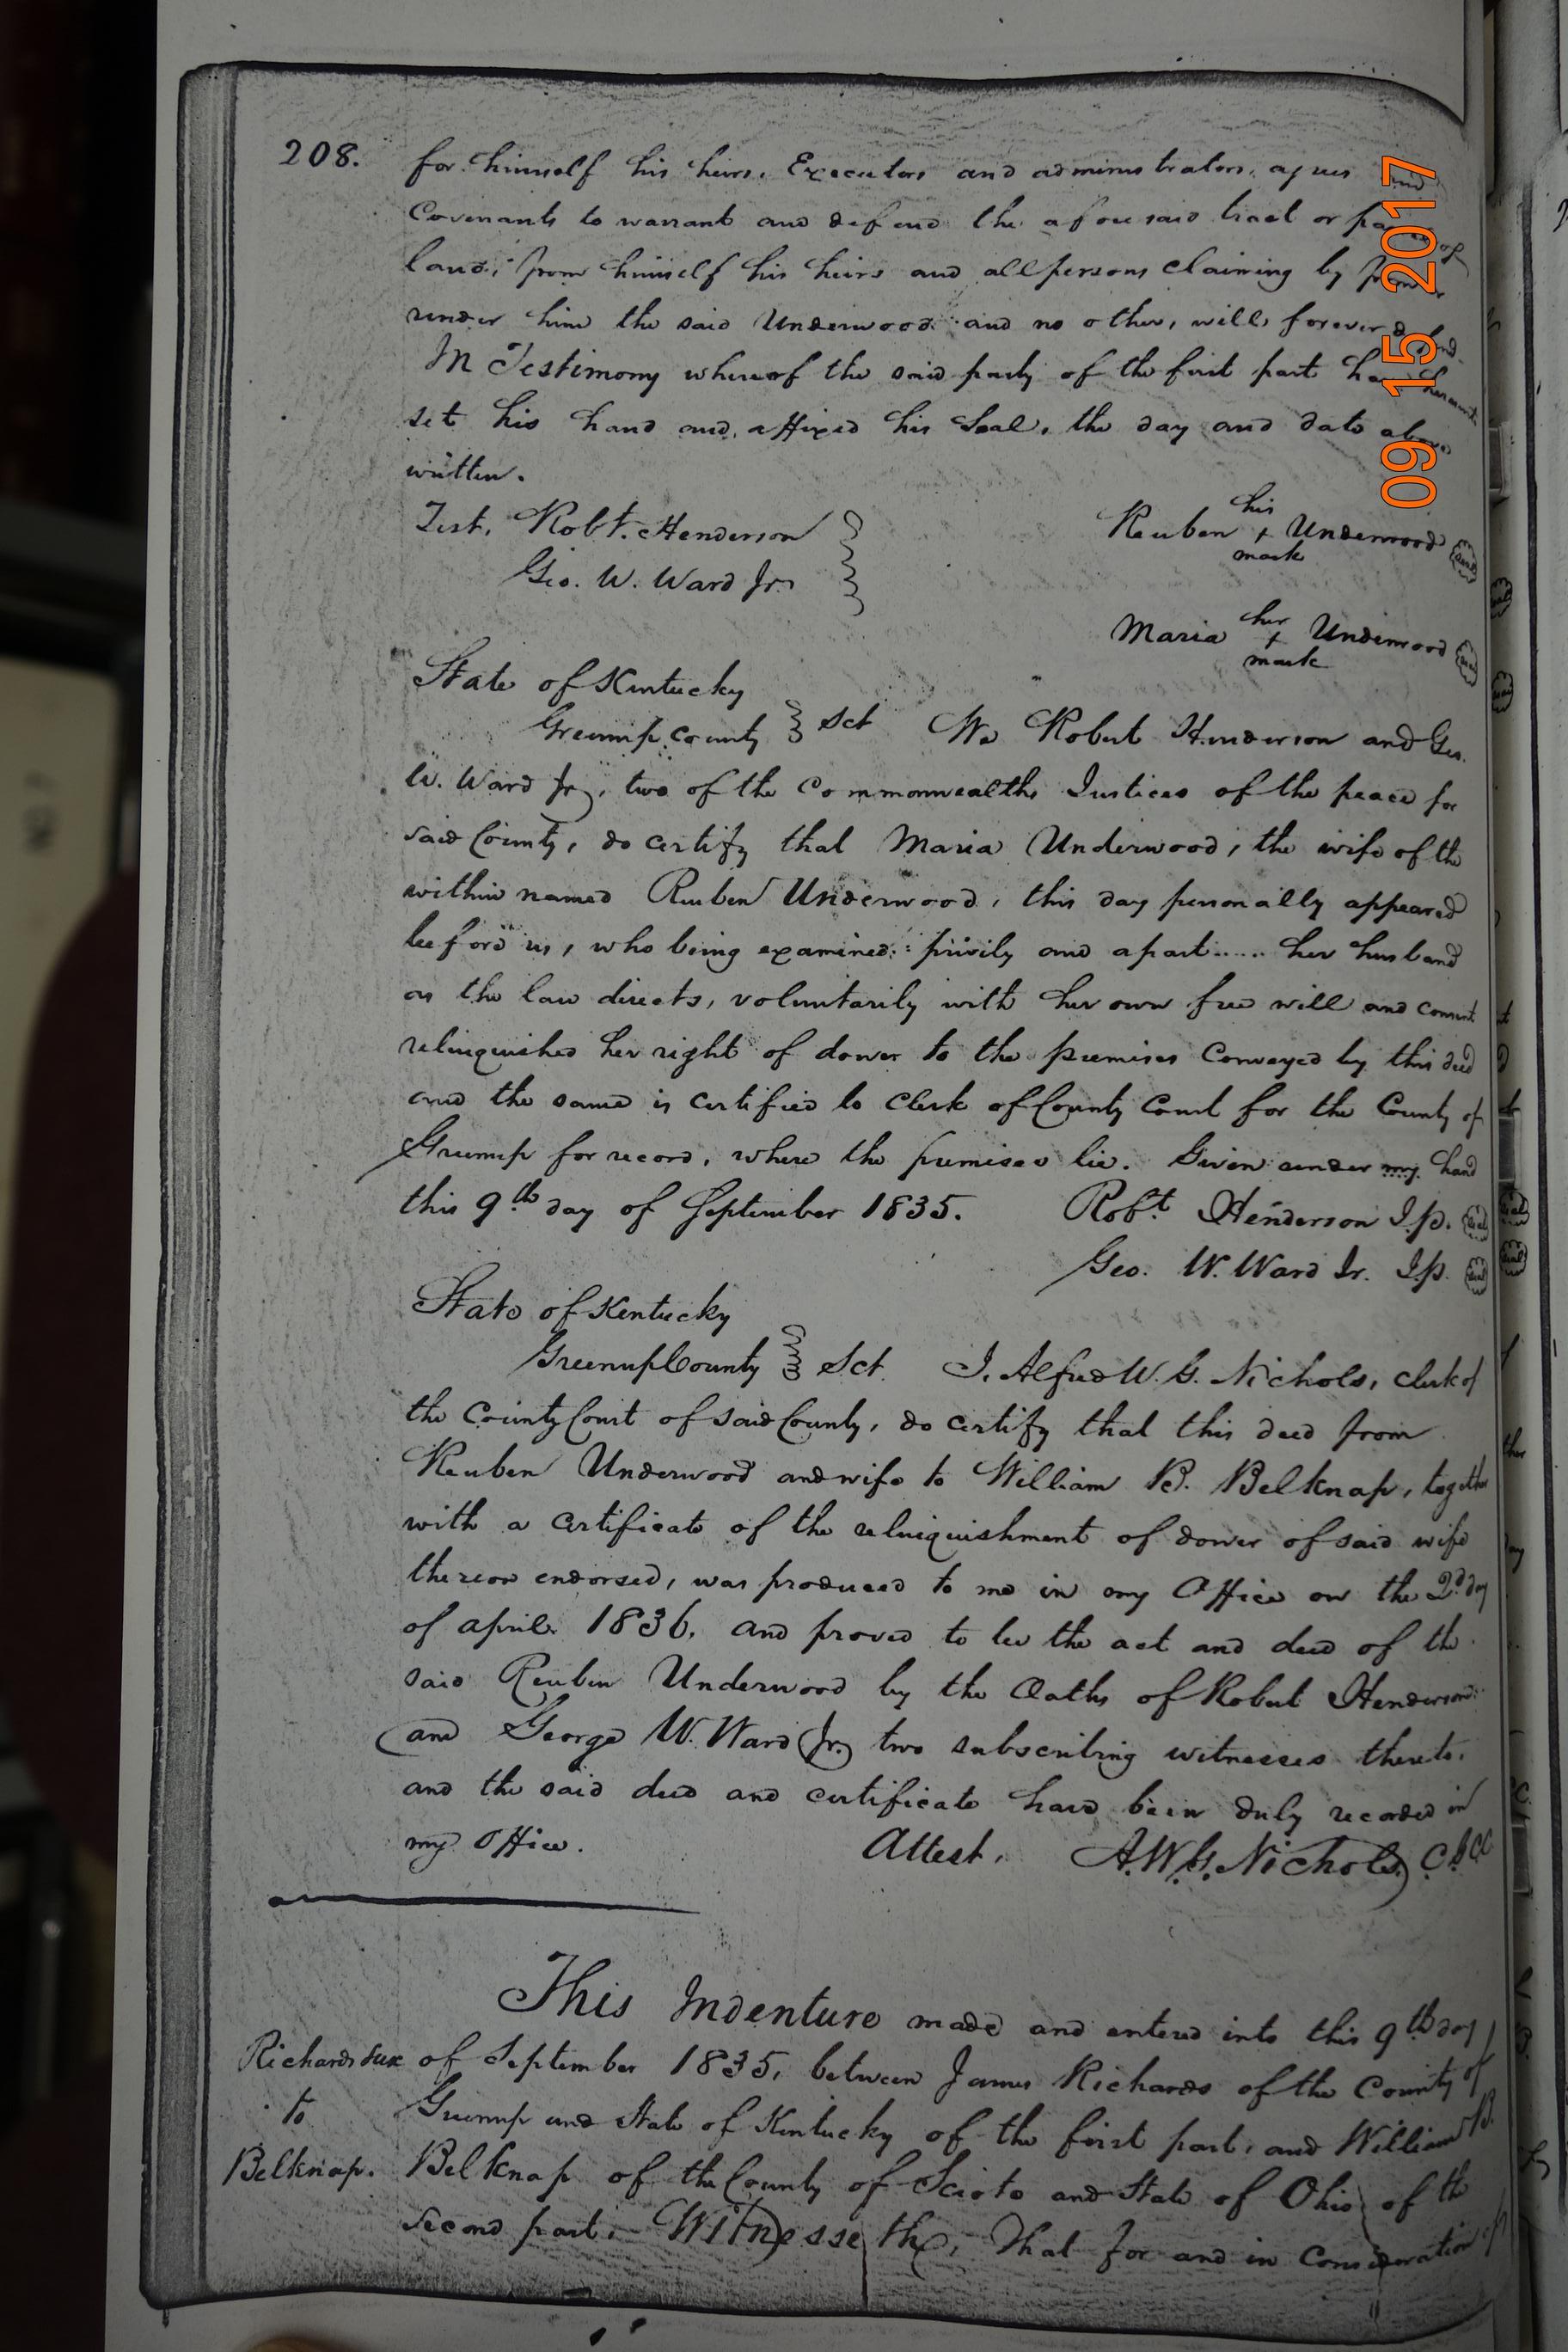 208.
for himself his heirs, Executors and administrators, agrees and
Covenants to warrant and defend the aforesaid tract or of
land, from himself his heirs and all persons claiming by from or
under him the said Underwood and no other, will, forever defend.
In Testimony whereof the said party of the first part has hereunto
set his hand and affixed his Seal, the day and date above
written.
Test. Robt. Henderson
Geo. W. Ward Jr.
his
Reuben + Underwood seal
mark
her
Maria + Underwood seal
mark
State of Kentucky
Greenup County Sct We Robert Henderson and Geo.
W. Ward Jr, two of the Commonwealths Justices of the peace for
said County, do certify that Maria Underwood, the wife of the
within named Reuben Underwood, this day personally appeared
before us, who being examined privily and apart..... her husband
as the law directs, voluntarily with her own free will and consent
relinquished her right of dower to the premises Conveyed by this deed
and the same is certified to Clerk of County Court for the County of
Greenup for record, where the premises lie. Given under my hand
this 9th day of September 1835. Robt Henderson J.p. seal
Geo. W. Ward Jr. J.p. seal
State of Kentucky
Greenup County Sct. I, Alfred W. G. Nichols, clerk of
the County Court of said County, do certify that this deed from
Reuben Underwood and wife to William B. Belknap, together
with a certificate of the relinquishment of dower of said wife
thereon endorsed, was produced to me in my Office on the 2d day
of april 1836. and proved to be the act and deed of the
said Reuben Underwood by the Oaths of Robert Henderson
and George W. Ward Jr. two subscribing witnesses thereto.
and the said deed and certificate have been duly recorded in
my Office. Attest. A. W. G. Nichols C G CC
This Indenture made and entered into this 9th day
Richards &ux of September 1835, between James Richards of the County of
to Greenup and State of Kentucky of the first part, and William B.
Belknap. Belknap of the County of Scioto and State of Ohio of the
second part, Witnesseth, That for and in Consideration of
09 15 2017